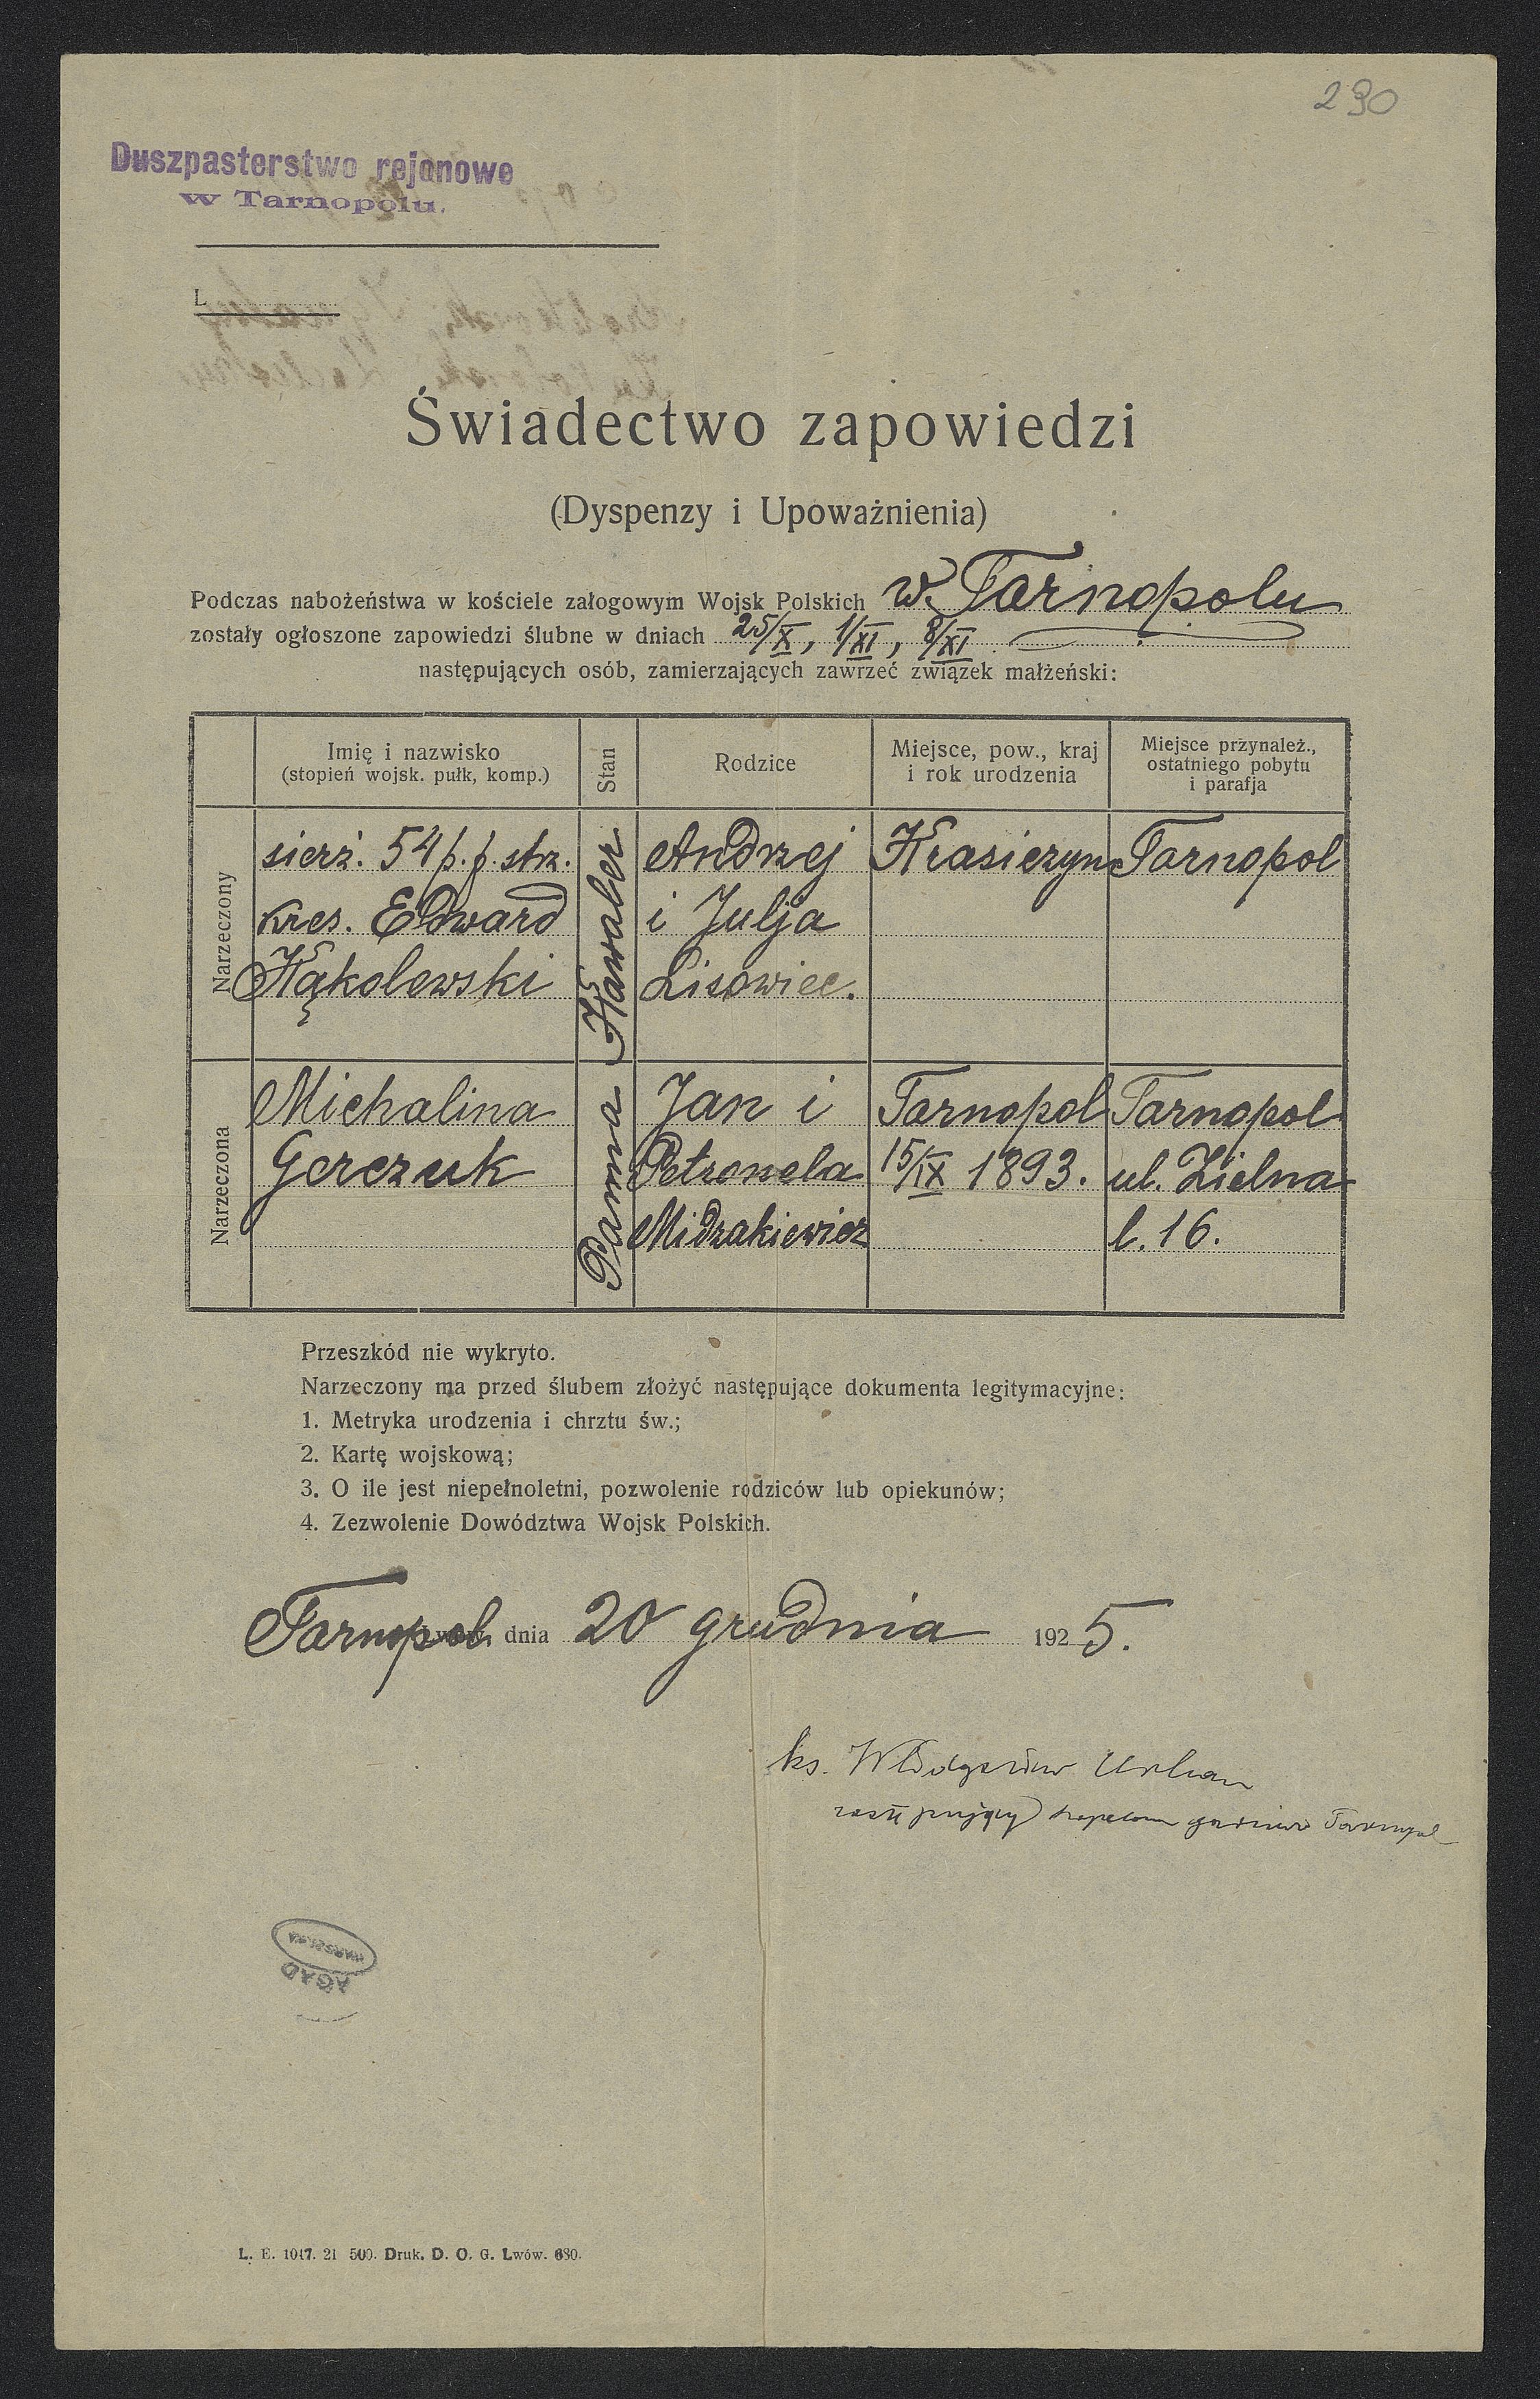 230
Duszpasterstwo rejonowe
w Tarnopolu.
L
Świadectwo zapowiedzi
(Dyspenzy i Upoważnienia)
Podczas nabożeństwa w kościele załogowym Wojsk Polskich w Tarnopolu
zostały ogłoszone zapowiedzi ślubne w dniach 25/X, 1/XI, 8/XI
następujących osób, zamierzających zawrzeć związek małżeński:
Imię i nazwisko
(stopień wojsk. pułk, komp.)
Stan
Rodzice
Miejsce, pow., kraj
i rok urodzenia
Miejsce przynależ.,
ostatniego pobytu
i parafja
Narzeczony
sierż. 54 p. p. strz.
kres. Edward
Kąkolewski
Kawaler
Andrzej
i Julja
Lisowiec.
Krasiczyn
Tarnopol
Narzeczona
Michalina
Gerczuk
Panna
Jan i
Petronela
Midzakiewicz
Tarnopol
15/IX 1893.
Tarnopol
ul. Zielna
l. 16.
Przeszkód nie wykryto.
Narzeczony ma przed ślubem złożyć następujące dokumenta legitymacyjne:
1. Metryka urodzenia i chrztu św.;
2. Kartę wojskową;
3. O ile jest niepełnoletni, pozwolenie rodziców lub opiekunów;
4. Zezwolenie Dowództwa Wojsk Polskich.
Tarnopol, dnia 20 grudnia 1925.
ks. Włodzimierz Urban
zastępujący kapelana garnizonu Tarnopol
AGAD
WARSZAWA
L. E. 1047. 21 500. Druk. D. O. G. Lwów. 680.